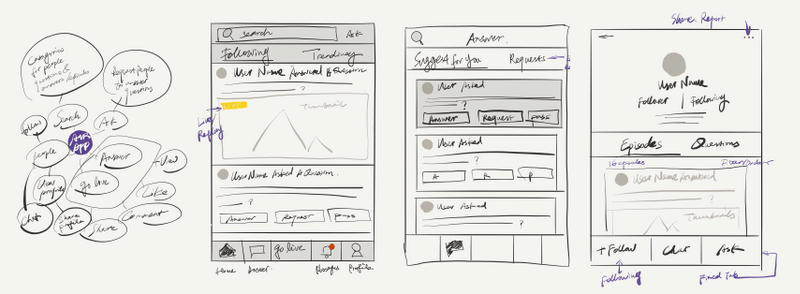 Categories
for people
questions &
Request People
to answer
questions
follow
Search
Ask
Ask
App
people
Answer
View
User
profiles
go live
Like
Chat
Share
Profile
Share
Comment
search
Ask
Following
Trending
User Name Answered A Question
?
LIVE
Thumbnails
Live
Replay
User Name Asked A Question
?
Answer
Request
Pass
go live
Home
Answer
Messages
Profile
Answer
Suggest for You
Requests
User Asked
?
Answer
Request
Pass
User Asked
?
A
R
P
User Asked
?
Share. Report
...
User Name
Follower
Following
Episodes
Questions
User Name Answered
?
Thumbnails
+ Follow
Chat
Ask
Following
Fixed Tab